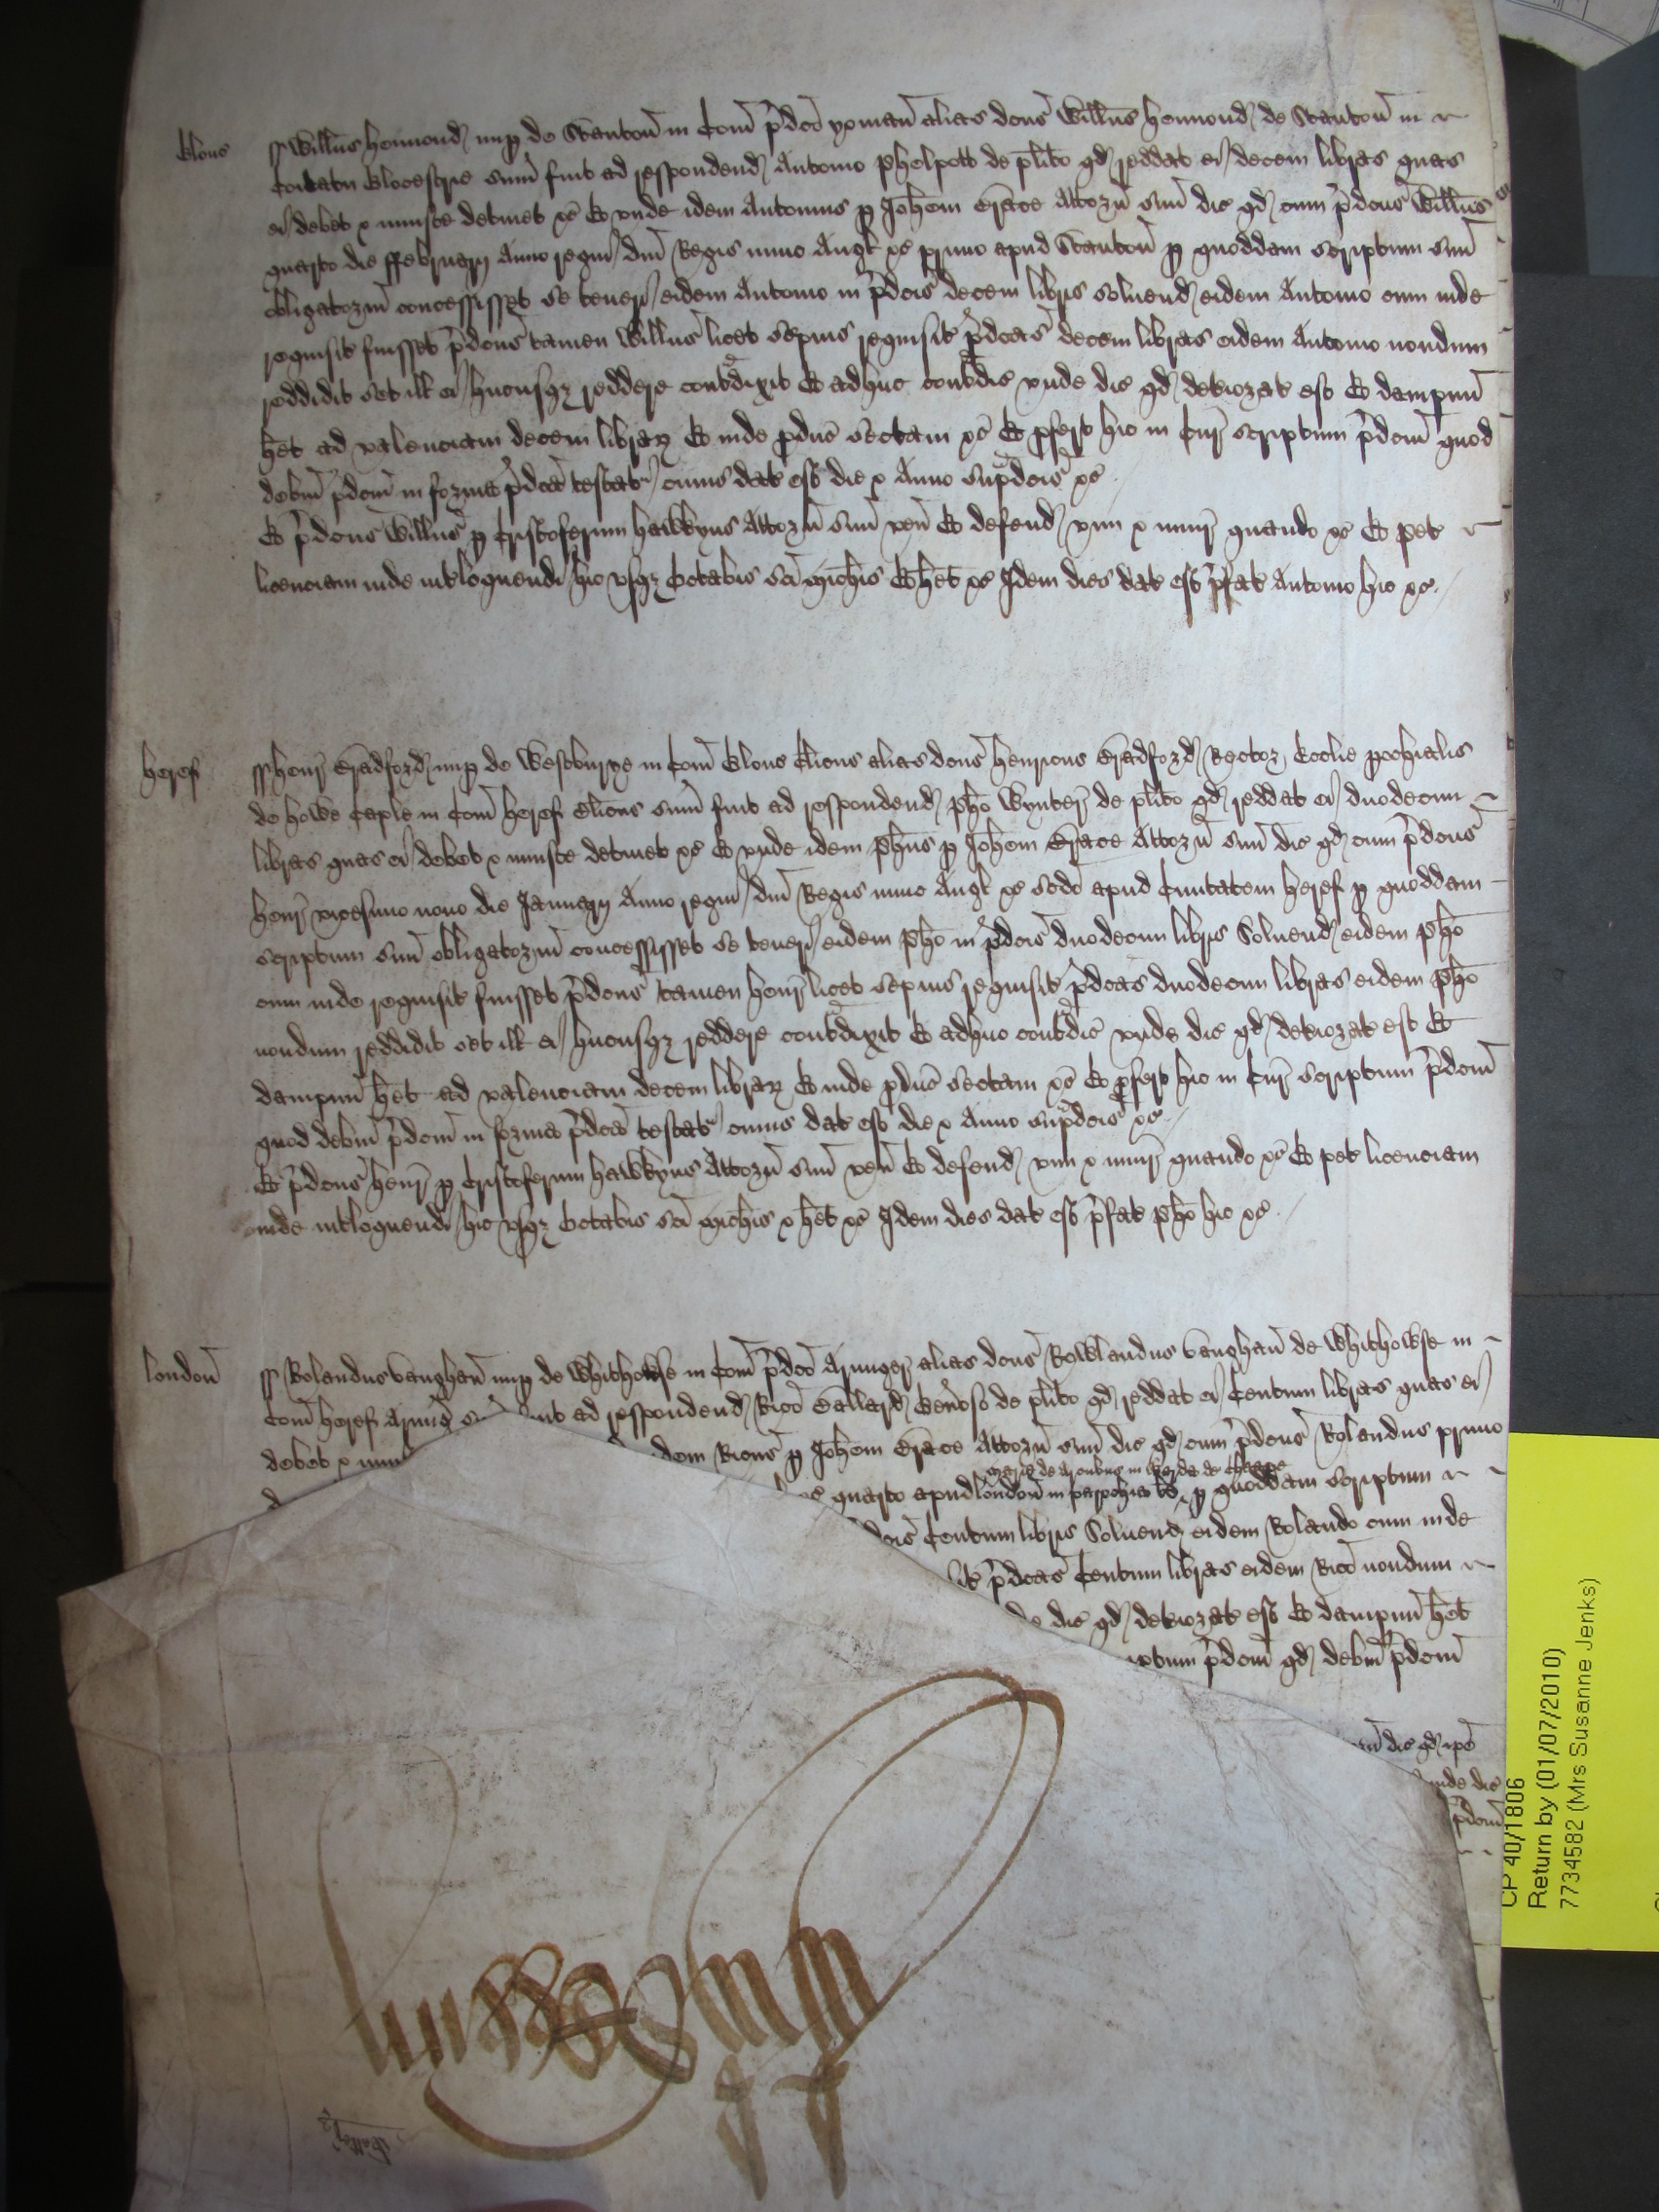 Glouc ss Willus Hemond nup de Staunton in Com pdco yoman alias dcus Willus Hemond de Staunton in
Comitatu Glocestrie sum fuit ad respondend Antonio Phelpott de plito qd reddat ei decem libras quas
ei debet & iniuste detinet &c Et unde idem Antonius p Johem Grace Attorn suu dic qd cum pdcus Willus
quarto die Ffebruarij Anno regni dni Regis nunc Angl &c primo apud Staunton p quoddam scriptum suu
obligatoriu concessisset se teneri eidem Antonio in pdcis decem libris solvend eidem Antonio cum inde
requisit fuisset pdcus tamen Willus licet sepius requisit pdcas decem libras eidem Antonio nondum
reddidit set ill ei hucusqz reddere contdixit Et adhuc contdic unde dic qd deteriorat est Et dampnu
het ad valenciam decem librarz Et inde pduc sectam &c Et pfert hic in Cur scriptum pdcm quod
debm pdcm in forma pdca testat cuius dat est die & Anno supdcis &c
Et pdcus Willus p Cristoferum Hawkyns Attorn suu ven Et defend vim & iniur quando &c Et pet
licenciam inde intloquendi hic usqz Octabis sci Michis Et het &c Idem dies dat est pfat Antonio hic &c
Heref ss Henr Bradford nup de Westburye in Com Glouc Clicus alias dcus Henricus Bradford Rector Ecclie pochialis
de Howe Caple in Com Heref Clicus sum fuit ad respondend Pho Wynter de plito qd reddat ei duodecim
libras quas ei debet & iniuste detinet &c Et unde idem Phus p Johem Grace Attorn suu dic qd cum pdcus
Henr vicesimo nono die Januarij Anno regni dni Regis nunc Angl &c scdo apud Civitatem Heref p quoddam
scriptum suu obligatoriu concessisset se teneri eidem Pho in pdcis duodecim libris Solvend eidem Pho
cum inde requisit fuisset pdcus tamen Henr licet sepius requisit pdcas duodecim libras eidem Pho
nondum reddidit set ill ei hucusqz reddere contdixit Et adhuc contdic unde dic qd deteriorat est Et
dampnu het ad valenciam decem librarz Et inde pduc sectam &c Et pfert hic in Cur scriptum pdcm
quod debm pdcm in forma pdca testat cuius dat est die & Anno supdcis &c
Et pdcus Henr p Cristoferum Hawkyns Attorn suu ven Et defend vim & iniur quando &c Et pet licenciam
inde intloquendi hic usqz Octabis sci Michis & het &c Idem dies dat est pfat Pho hic &c
London ss Rolandus Vaughan nup de Whithowse in Com pdco Armiger alias dcus Rowlandus Vaughan de Whithowse in
Com Heref Armig fuit ad respondend Rico Ballard Genoso de plito qd reddat ei Centum libras quas ei
debet & dem Ricus p Johem Grace Attorn suu dic qd cum pdcus Rolandus primo
Marie de Arcubus in Warda de Cheape
&c quarto apud London in parochia be p quoddam scriptum
dcis Centum libris Solvend eidem Rolando cum inde
it pdcas Centum libras eidem Rico nondum
de dic qd deteriorat est Et dampnu het
iptum pdcm qd debm pdcm
dic qd ipe
inde die
pdcm
CP 40/1806
Return by (01/07/2010)
7734582 (Mrs Susanne Jenks)